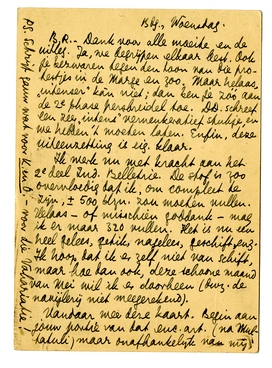 Btg, Woensdag
B.R.– Dank voor alle moeite en de
Ja, we begrijpen elkaar best. Ook
je bezwaren tegen den toon van die pro-
testjes in de Marge en zoo. Maar helaas,
"intenser" kàn niet; dan ben je zóó aan
de 2e phase persbreidel toe. D.D. schreef
een zéér "intens" stukje en
we hebben 't moeten laten. Enfin, deze
uiteenzetting is eig. klaar.
Ik werk nu met kracht aan het
2e deel Ind. Belletrie. De stof is zoo
overvloedig dat ik, om compleet te
zijn, ± 500 blzn. zou moeten vullen.
Helaas – of misschien goddank – mag
ik er maar 320 vullen. Het is nu een
heel gelees, getik, nagelees, geschift, enz.
Ik hoop dat ik er zelf niet van schift,
maar hoe dan ook, deze schoone maand
van Mei wil ik er doorheen (burg. de
nawijlerij niet meegerekend).
Vandaar mee deze kaart. Begin aan
jouw portie van dat enc. art. (na Mul-
tatuli) maar onafhankelijk van mij
PS. Schrijf gauw wat voor K. en O. – voor die Vaforiatie!